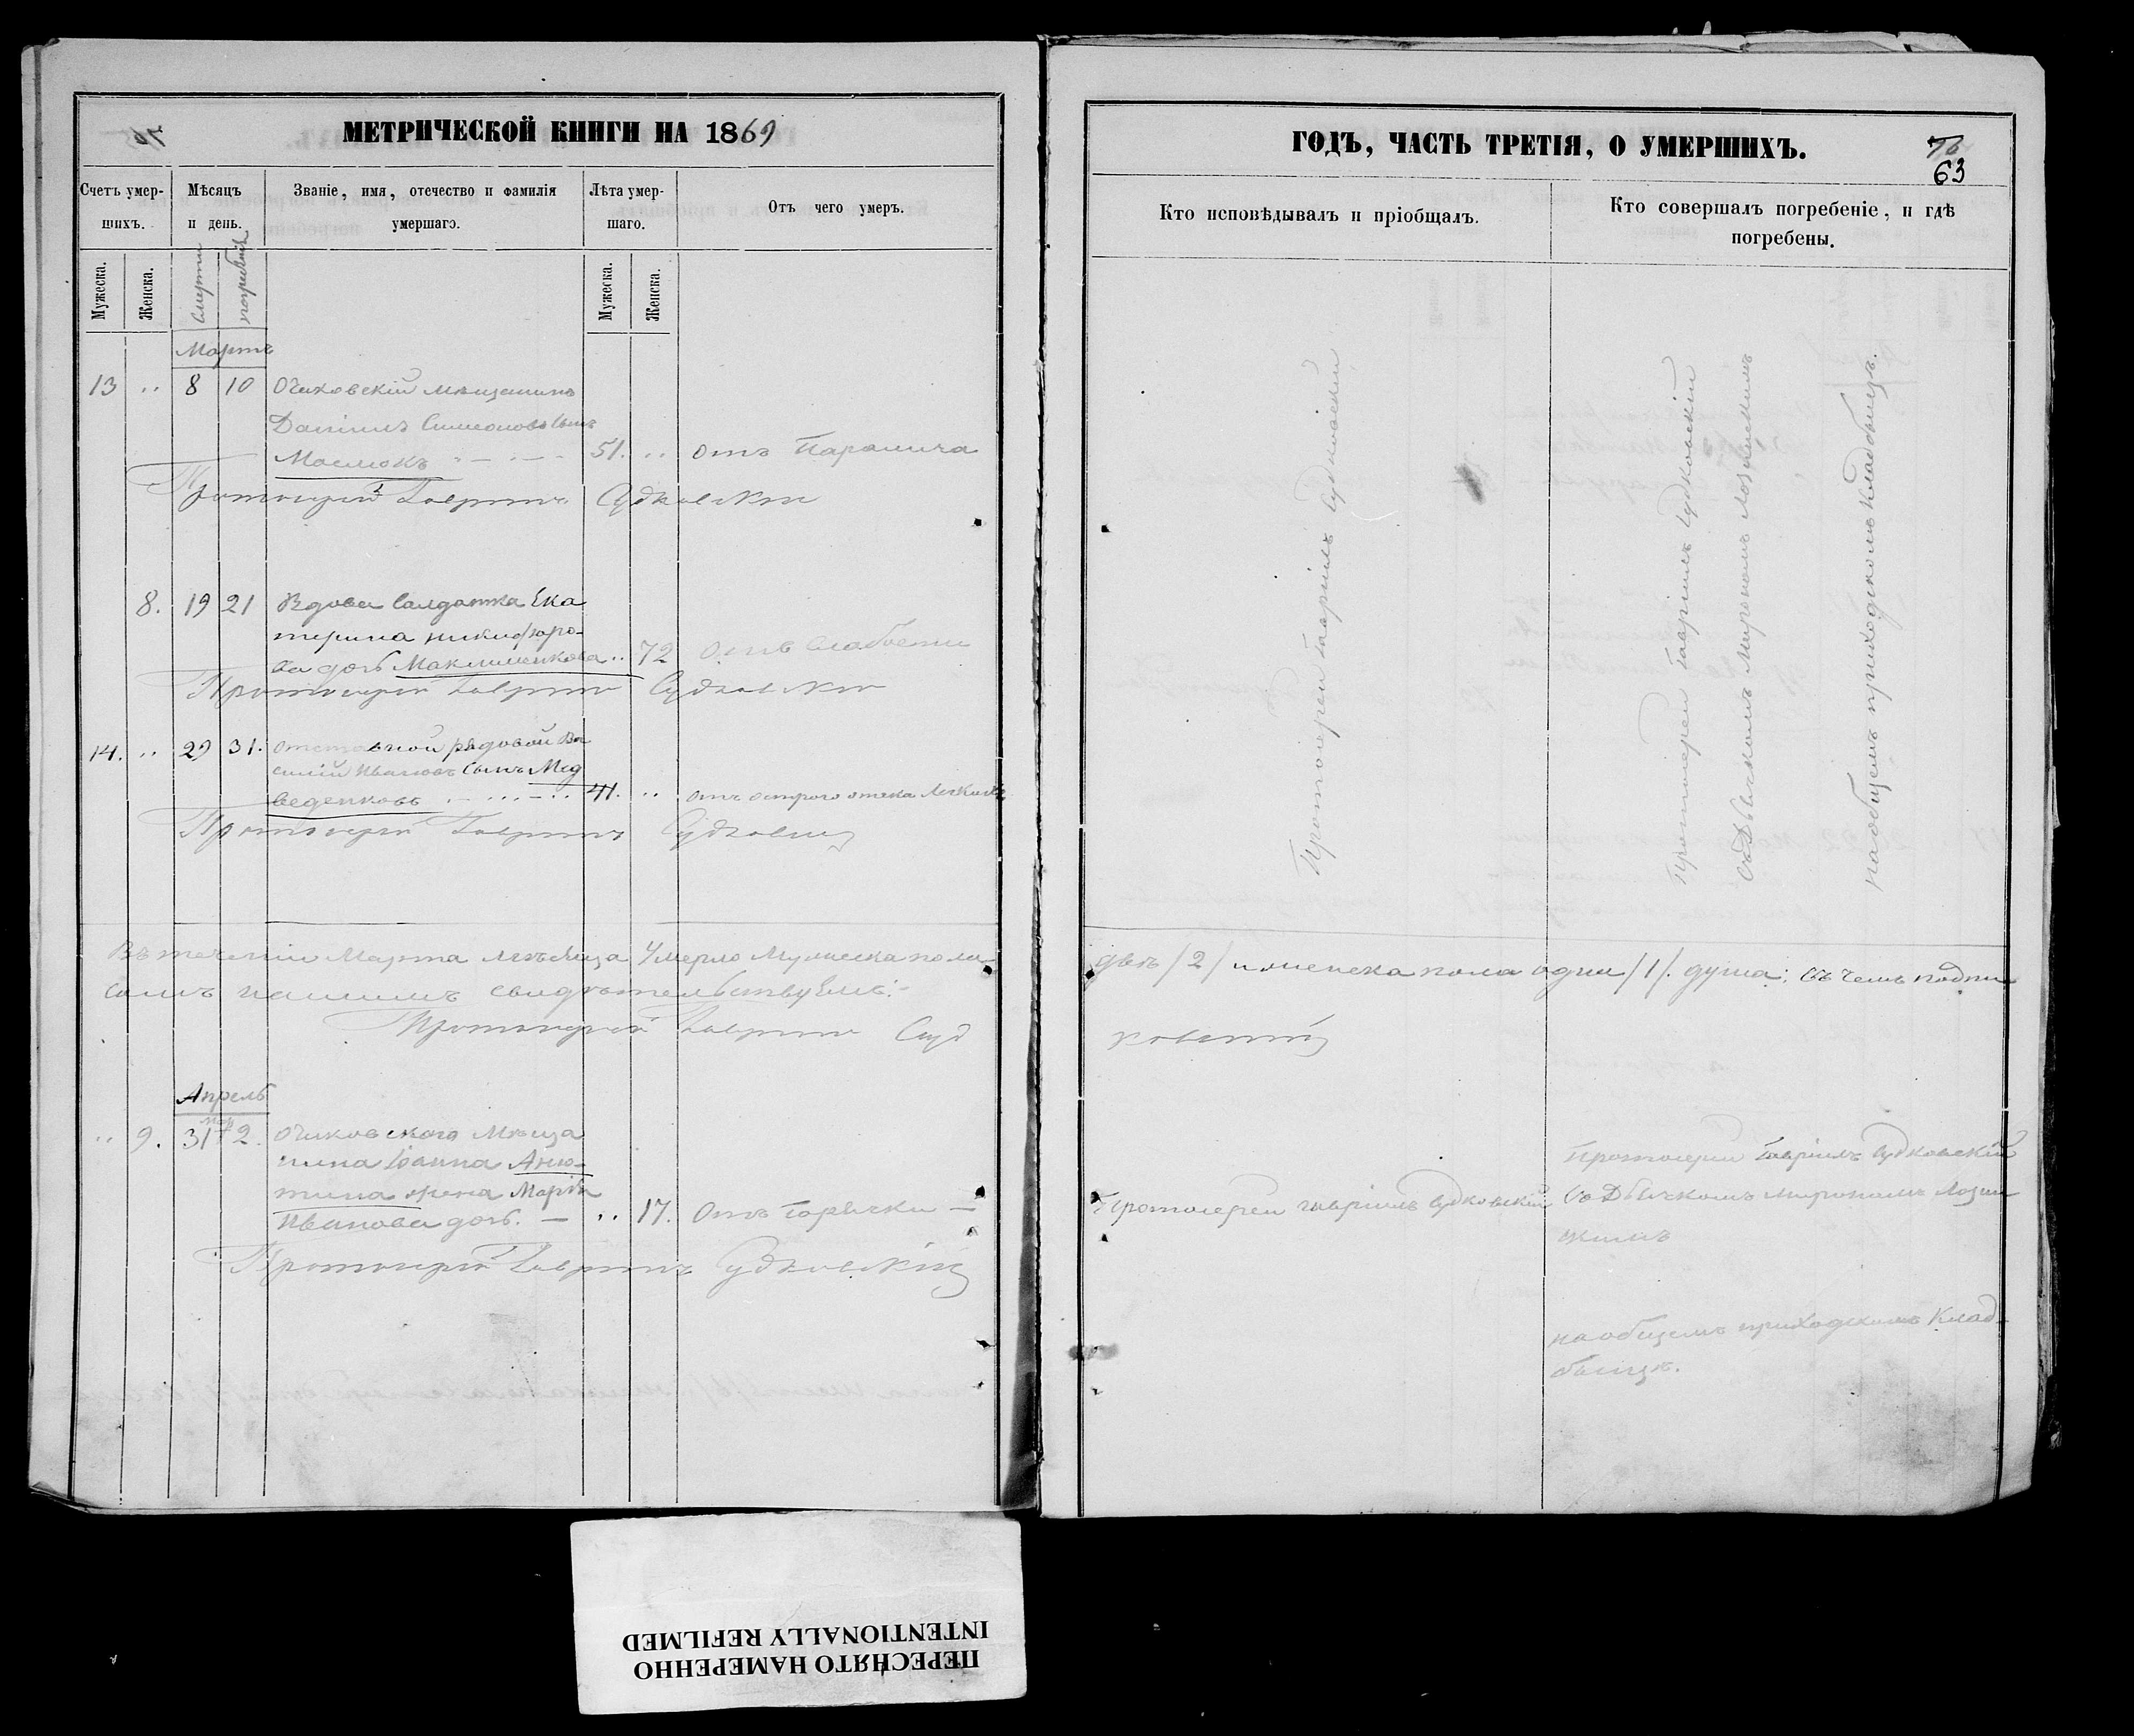 МЕТРИЧЕСКОЙ КНИГИ НА 1869
Счетъ умер-
шихъ.
Мѣсяцъ
и день.
Званіе, имя, отечество и фамилія
умершаго.
Лѣта умер-
шаго.
Отъ чего умеръ.
Мужеска.
Женска.
смерти
погребенія
Мужеска.
Женска.
Мартъ
13 .. 8 10 Очаковскій мѣщанинъ
Даніилъ Симеоновъ сынъ
Маслюкъ 51. .. отъ Паралича
Протоіерей Гавріилъ Судковскій
8. 19 21 Вдова Салдатка Ека
терина Никифоро-
ва дочь Маклишенкова .. 72 отъ Слабости
Протоіерей Гавріилъ Судковскій
14. .. 29 31. отставной рядовой Ва
силій Ивановъ Сынъ Мед
веденковъ 41. .. отъ острого отека Легкихъ
Протоіерей Гавріилъ Судковскій
Въ теченіи Марта мѣсяца Умерло Мужеска пола
самъ нашимъ свидѣтельствуемъ:
Протоіерей Гавріилъ Суд
Апрель
Мар
.. 9. 31 2. Очаковскаго Мѣща
нина Іоанна Аню-
тина жена Марія
Иванова дочь. — .. 17. Отъ Горячки —
Протоіерей Гавріилъ Судковскій
ГОДЪ, ЧАСТЬ ТРЕТІЯ, О УМЕРШИХЪ.
76
63
Кто исповѣдывалъ и пріобщалъ.
Кто совершалъ погребеніе, и гдѣ
погребены.
Протоіерей Гавріилъ Судковскій
Протоіерей Гавріилъ Судковскій
съ Дьячкомъ Мирономъ Лозинскимъ
на общемъ приходскомъ кладбищѣ.
двѣ /2/ и женска пола одна /1/. душа: въ чемъ подпи
ковскій
Протоіерей Гавріилъ Судковскій
Протоіерей Гавріилъ Судковскій
съ Дьячкомъ Мирономъ Лозин
скимъ
на общемъ приходскомъ Клад-
бищѣ.
ПЕРЕСНЯТО НАМЕРЕННО
INTENTIONALLY REFILMED